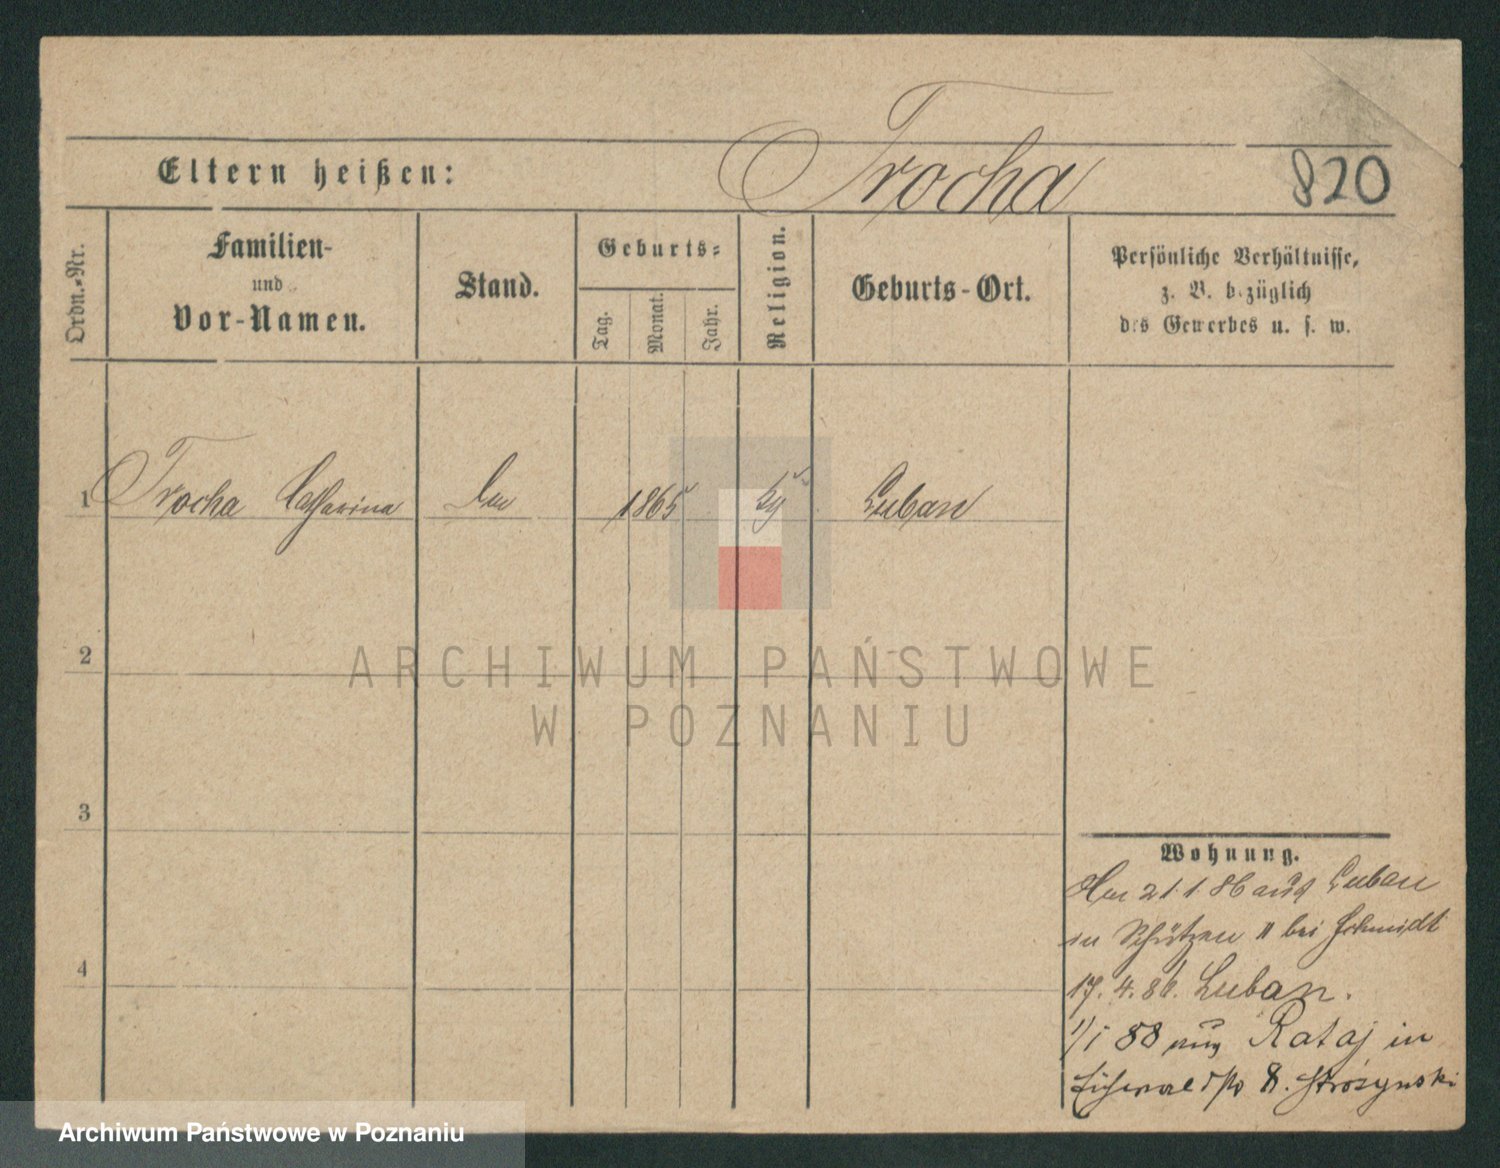 Trocha
Eltern heißen:
820
Ordn.-Nr.
Familien-
und
Vor-Namen.
Stand.
Geburts-
Tag.
Monat.
Jahr.
Religion.
Geburts-Ort.
Persönliche Verhältnisse,
z. B. bezüglich
des Gewerbes u. s. w.
1 Trocha Catharina 1865 Luban
2
ARCHIWUM PAŃSTWOWE
W POZNANIU
3
Wohnung.
21.1.86 aus Luban
in Schützen 11 bei Schmidt
4
17.4.86. Luban.
1/1 88 aus Rataj in
8. Strozynski
Archiwum Państwowe w Poznaniu